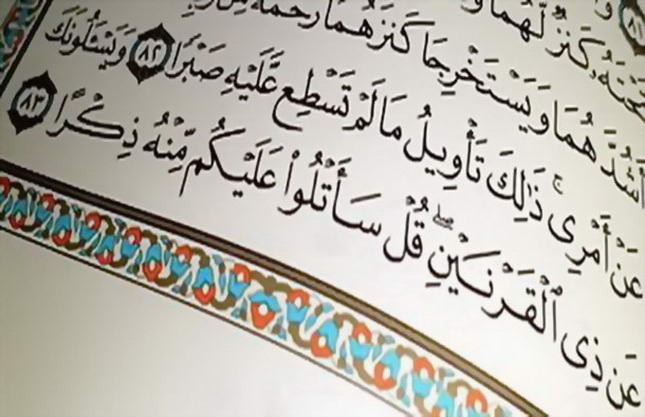 تَحْتَهُۥ كَنزٌ لَّهُمَا
أَشُدَّهُمَا وَيَسْتَخْرِجَا كَنزَهُمَا رَحْمَةً مِّن
عَنْ أَمْرِى ۚ ذَٰلِكَ تَأْوِيلُ مَا لَمْ تَسْطِع عَّلَيْهِ صَبْرًا ٨٢ وَيَسْـَٔلُونَكَ
عَن ذِى ٱلْقَرْنَيْنِ ۖ قُلْ سَأَتْلُوا۟ عَلَيْكُم مِّنْهُ ذِكْرًا ٨٣